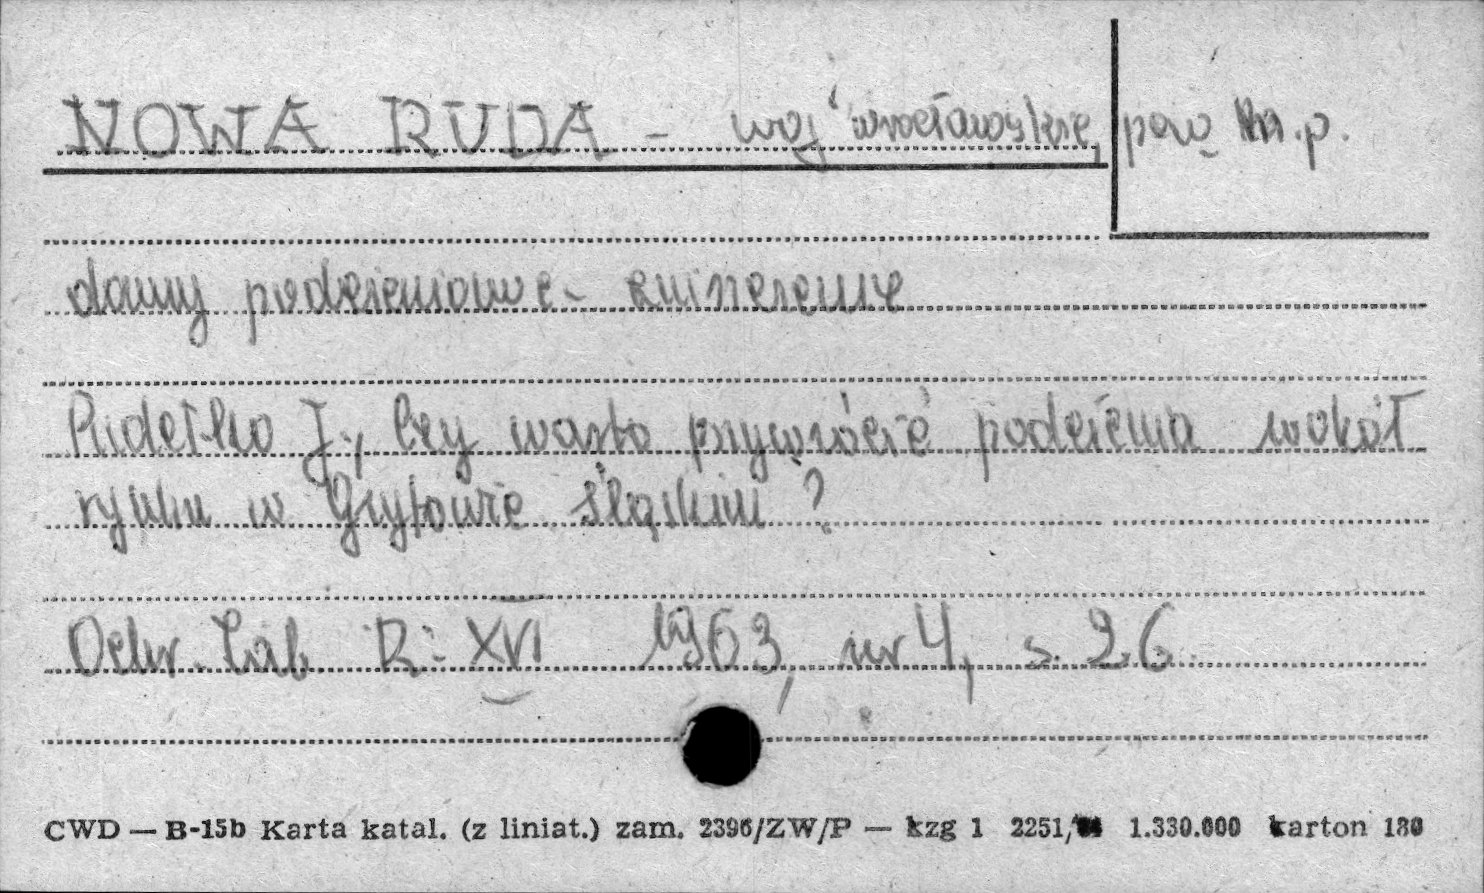 NOWA RUDA - woj wrocławskie, pow m.p.
domy podcieniowe - zniszczenie
Pudełko J., Czy warto przywrócić podcienia wokół
rynku w Gryfowie Śląskim?
Ochr. Zab R: XVI 1963, nr 4, s. 26
CWD — B-15b Karta katal. (z liniat.) zam. 2396/ZW/P — kzg 1 2251/ 1.330.000 karton 180